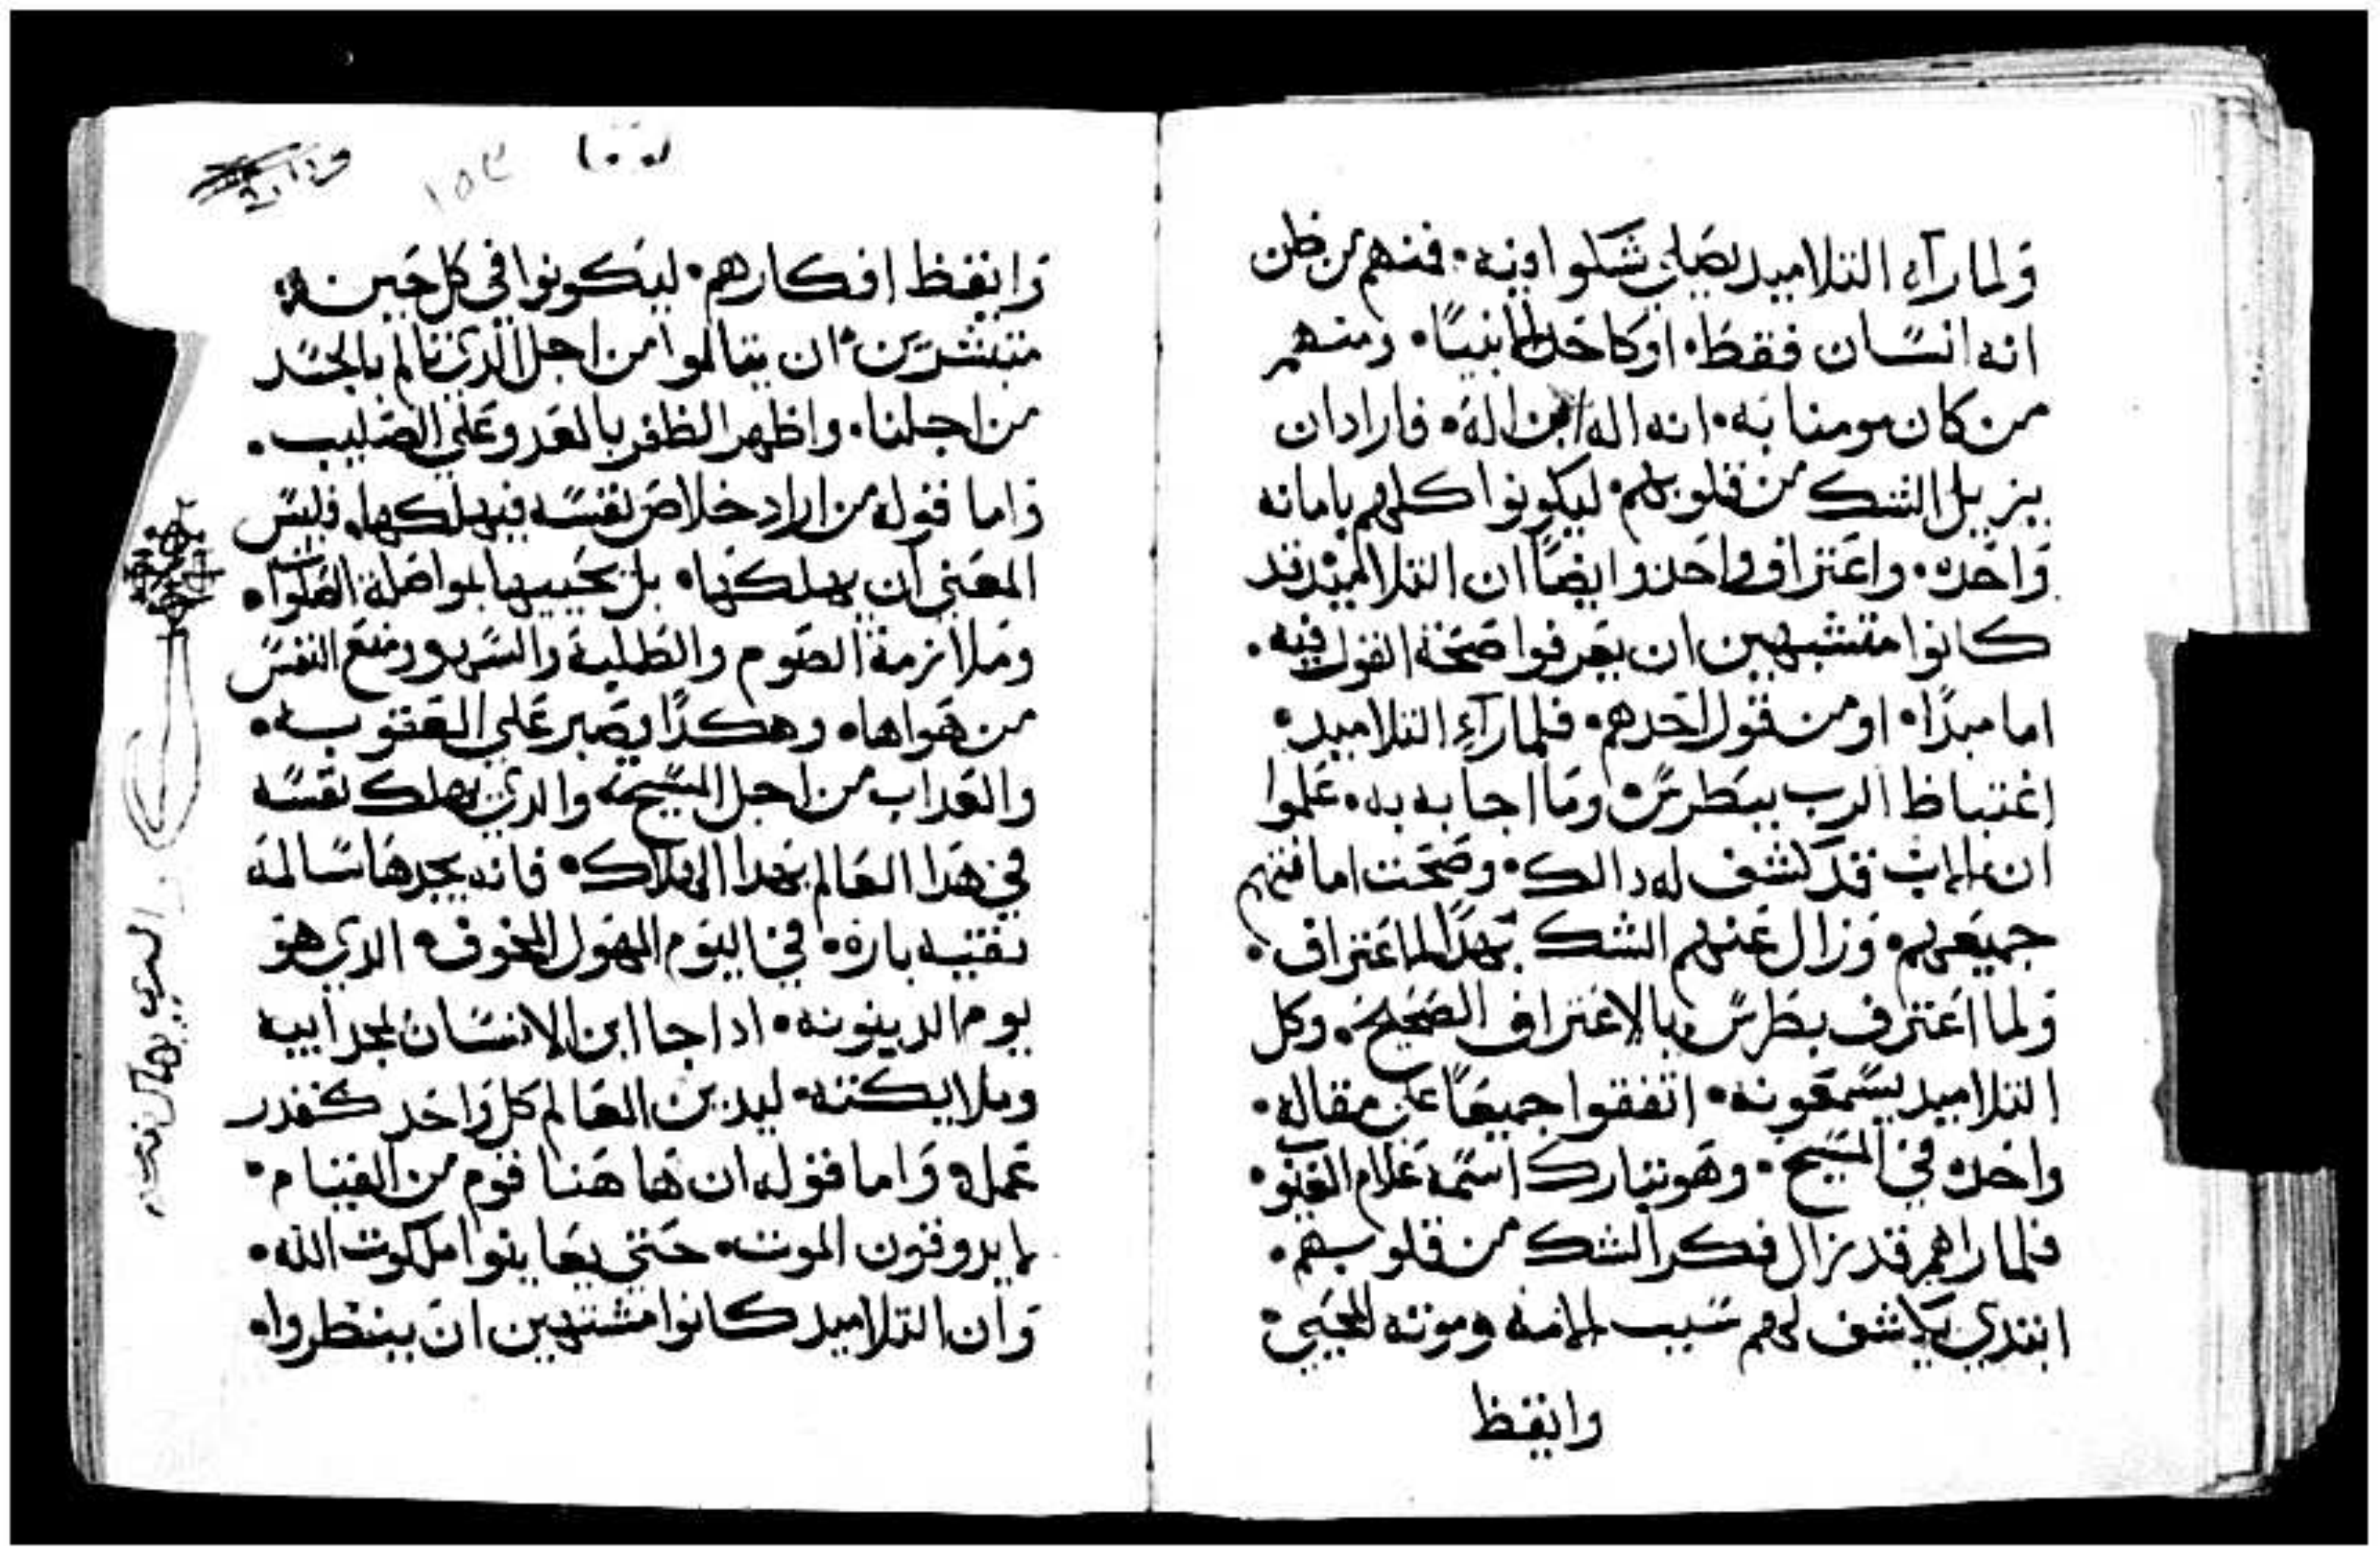 ولما رآه التلاميد يصلي شكوا فيه. فمنهم من ظن
انه انسان فقط. او كاحد الانبيا. ومنهم
من كان مومنا به. انه اله ابن اله. فاراد ان
يزيل الشك من قلوبهم. ليكونوا كلهم بامانه
واحده. واعتراف واحد وايضا ان التلاميد قد
كانوا متشبهين ان يعرفوا صحة القول فيه.
اما مبدا. او من قول احدهم. فلما رآء التلاميد.
اغتباط الرب ببطرس. وما اجابه به. علموا
ان الاب قد كشف له دالك. وصحت امانتهم
جميعهم. وزال عنهم الشك بهدا الاعتراف.
ولما اعترف بطرس بالاعتراف الصحيح. وكل
التلاميد يسمعونه. اتفقوا جميعا على مقاله.
واحده في المسيح. وهو تبارك اسمه علام الغيوب.
فلما راهم قد زال فكر الشك من قلوبهم.
ابتدي يكاشف لهم سبب الامه وموته المحيي.
وايقظ
١٥٣
وايقظ افكارهم. ليكونوا في كل حين
متبشرين. ان يتالموا من اجل الدي تالم بالجسد
من اجلنا. واظهر الظفر بالعدو على الصليب.
واما قوله من اراد خلاص نفسه فيهلكها. فليس
المعني ان يهلكها. بل يحييها بمواصلة الصلوات
وملازمة الصوم والطلبة والسهر ومنع النفس
من هواها. وهكدا يصبر علي العقوبه.
والعداب من اجل المسيح. والدي يهلك نفسه
في هدا العالم بهدا الهلاك. فانه يجدها سالمه
نقيه باره. في اليوم المهول المخوف. الدي هو
يوم الدينونه. ادا جا ابن الانسان بمجد ابيه
وملايكته. ليدين العالم كل واحد كقدر
عمله. واما قوله ان ها هنا قوم من القيام.
لا يدوقون الموت. حتي يعاينوا ملكوت الله.
وان التلاميد كانوا مشتهين ان ينظروا.